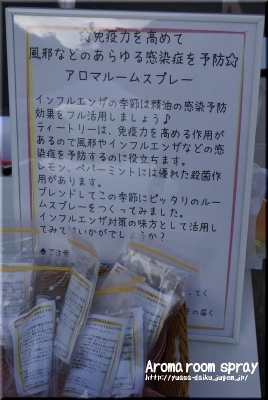 ☆免疫力を高めて
風邪などのあらゆる感染症を予防☆
アロマルームスプレー
インフルエンザの季節は精油の感染予防
効果をフル活用しましょう♪
ティートリーは、免疫力を高める作用が
あるので風邪やインフルエンザなどの感
染症を予防するのに役立ちます。
レモン、ペパーミントには優れた殺菌作
用があります。
ブレンドしてこの季節にピッタリのルー
ムスプレーをつくってみました。
インフルエンザ対策の味方として活用し
てみてはいかがでしょうか？
Aroma room spray
http://yuasa-daiku.jugem.jp/